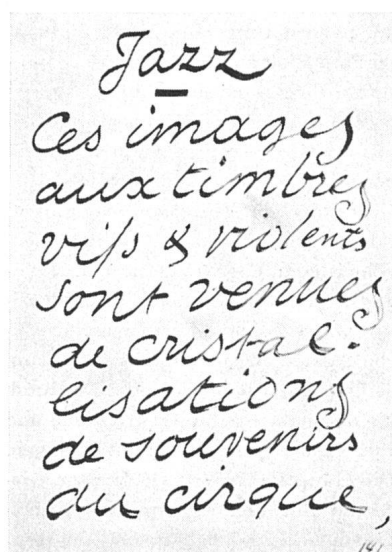 Jazz
Ces images
aux timbres
vifs & violents
sont venues
de cristal-
lisations
de souvenirs
du cirque,
141